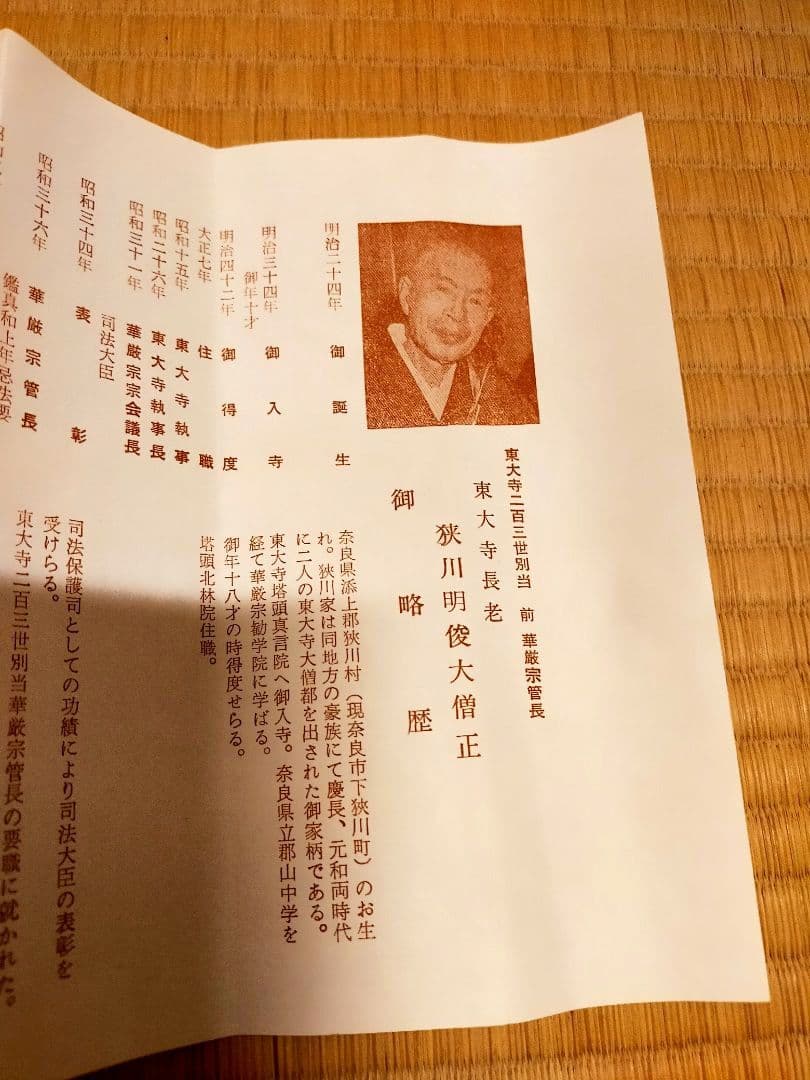 東大寺二百三世別当　前　華厳宗管長
東大寺長老
狭川明俊大僧正
御略歴
明治二十四年　御誕生　奈良県添上郡狭川村（現奈良市下狭川町）のお生
れ。狭川家は同地方の豪族にて慶長、元和両時代
に二人の東大寺大僧都を出された御家柄である。
明治三十四年　御入寺　東大寺塔頭真言院へ御入寺。奈良県立郡山中学を
御年十才　経て華厳宗勧学院に学ばる。
明治四十二年　御得度　御年十八才の時得度せらる。
大正七年　住職　塔頭北林院住職。
昭和十五年　東大寺執事
昭和二十六年　東大寺執事長
昭和三十一年　華厳宗宗会議長
司法大臣
昭和三十四年　表彰　司法保護司としての功績により司法大臣の表彰を
受けらる。
昭和三十六年　華厳宗管長　東大寺二百三世別当華厳宗管長の要職に就かれた。
鑑真和上年忌法要